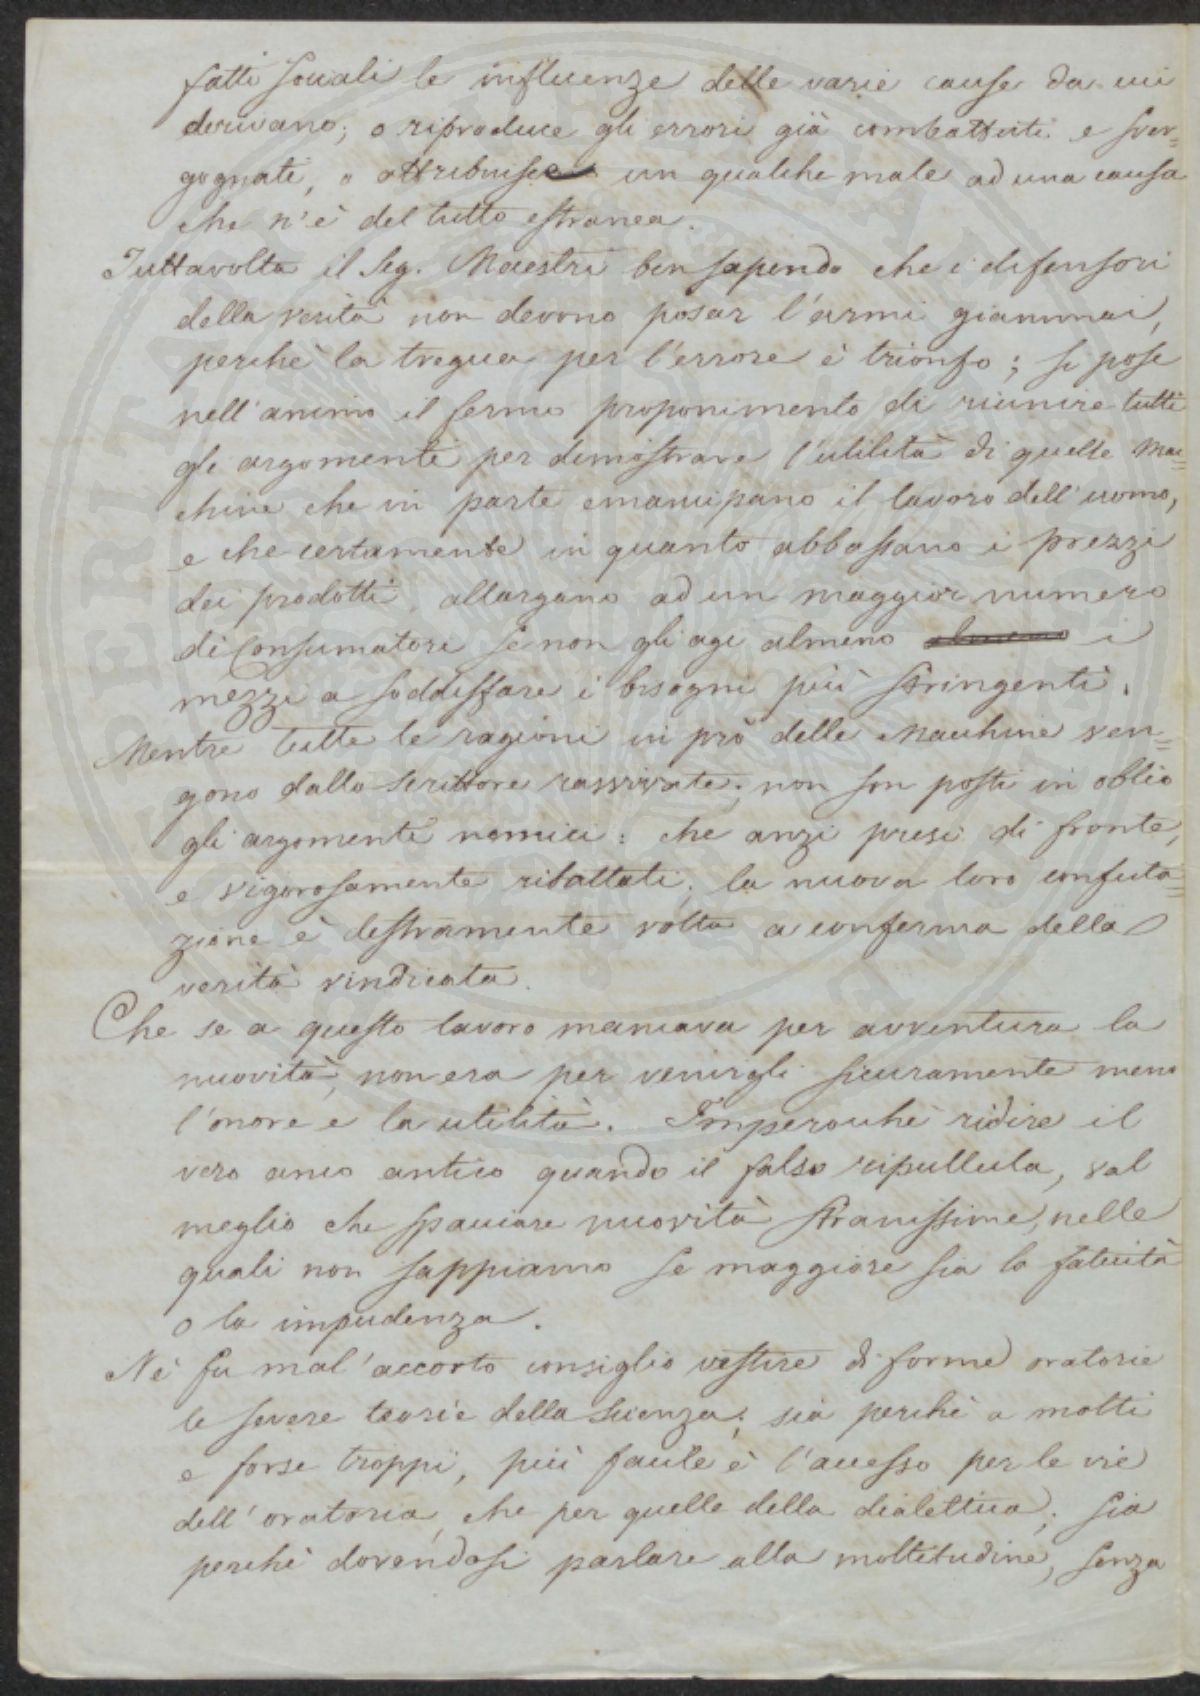 fatti sociali le influenze delle varie cause da cui
derivano; o riproduce gli errori già combattuti e sver=
gognati, o attribuisce un qualche male ad una causa
che n'è del tutto estranea.
Tuttavolta il Sig. Maestri ben sapendo che i difensori
della verità non devono posar l'armi giammai,
perchè la tregua per l'errore è trionfo; si pose
nell'animo il fermo proponimento di riunire tutti
gli argomenti per dimostrare l'utilità di quelle Mac=
chine che in parte emancipano il lavoro dell'uomo,
e che certamente in quanto abbassano i prezzi
dei prodotti, allargano ad un maggior numero
di Consumatori se non gli agi almeno i
mezzi a soddisfare i bisogni più stringenti.
Mentre tutte le ragioni in prò delle Macchine ven=
gono dallo Scrittore ravvivate; non son posti in oblio
gli argomenti nemici: che anzi presi di fronte,
e vigorosamente ribattuti, la nuova loro confuta=
zione è destramente volta a conferma della
verità vindicata.
Che se a questo lavoro mancava per avventura la
nuovità, non era per venirgli sicuramente meno
l'onore e la utilità. Imperocchè ridire il
vero anco antico quando il falso ripullula, val
meglio che spacciare nuovità stranissime, nelle
quali non sappiamo se maggiore sia la fatuità
o la impudenza.
Nè fu mal'accorto consiglio vestire di forme oratorie
le severe teorie della Scienza; sia perchè a molti
e forse troppi, più facile è l'accesso per le vie
dell'oratoria, che per quelle della dialettica; sia
perchè dovendosi parlare alla moltitudine, senza